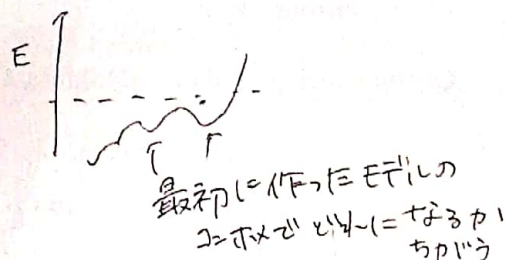 E
最初に作ったモデルの
コンホメでどれになるか
ちがう